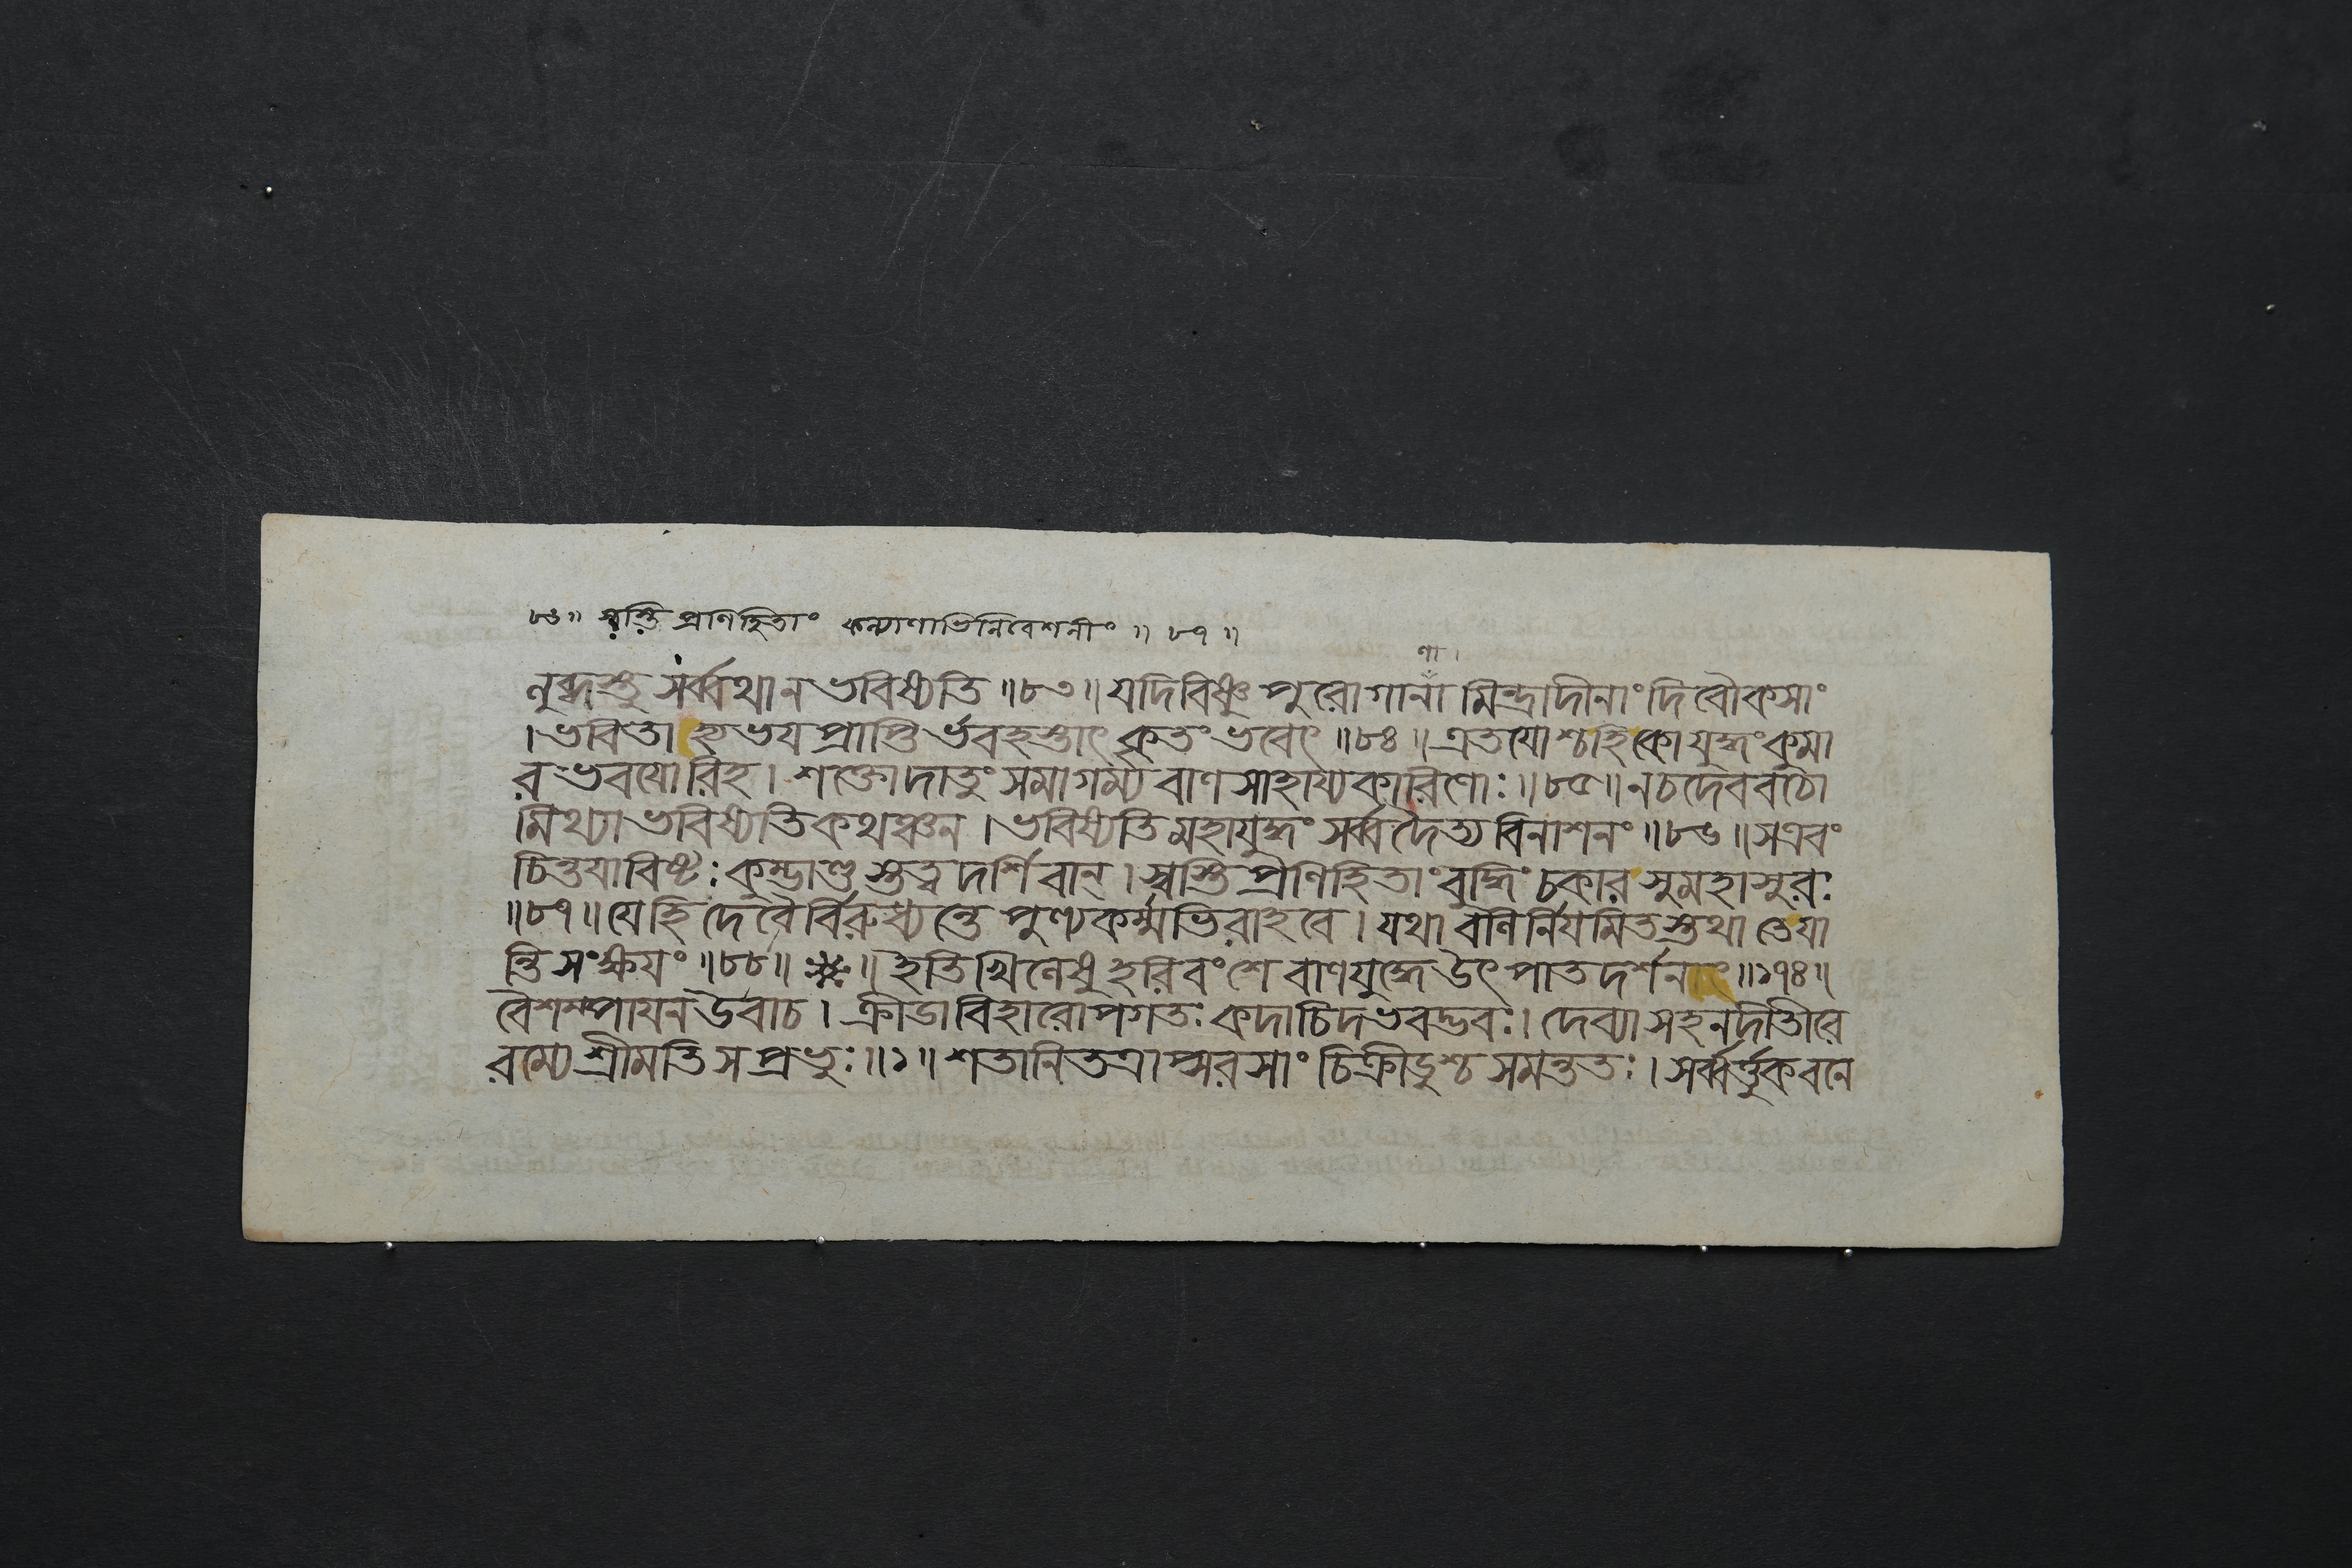 ৮৬॥ স্বস্তি প্রণিহিতাং কল্যাণাভিনিবেশনীং ॥ ৮৭ ॥
ণা।
নুব্দস্তু সর্ব্বথা ন ভবিষ্যতি ॥৮৩॥ যদি বিষ্ণু পুরোগানা মিন্দ্রাদীনাং দিবৌকসাং
। ভবিতা হ্যভয প্রাপ্তি র্ভবহস্তাৎ কৃতং ভবেৎ ॥৮৪॥ এতযোশ্চ হি কো যুদ্ধং কুমা
র ভবযোরিহ । শক্তো দাতুং সমাগম্য বাণ সাহায্যকারিণোঃ ॥৮৫॥ ন চ দেববচো
মিথ্যা ভবিষ্যতি কথঞ্চন । ভবিষ্যতি মহাযুদ্ধং সর্ব্বদৈত্য বিনাশনং ॥৮৬॥ স এবং
চিন্তযাবিষ্টঃ কুম্ভাণ্ড স্তত্ত্ব দর্শিবান্ । স্বস্তি প্রণিহিতাং বুদ্ধিং চকার সুমহাসুরঃ
॥৮৭॥ যে হি দেবৈর্বিরুধ্যন্তে পুণ্যকর্ম্মভিরাহবে । যথা বনির্নিযমিতস্তথা তে যা
ন্তি সংক্ষযং ॥৮৮॥ ※ ॥ ইতি খিলেষু হরিবংশে বাণযুদ্ধে উৎপাতদর্শনাৎ ॥১৭৪॥
বৈশম্পাযন উবাচ । ক্রীডাবিহারোপগতঃ কদাচিদভবদ্ভবঃ । দেব্যা সহ নদীতীরে
রম্যে শ্রীমতি স প্রভুঃ ॥১॥ শতানি তত্রাপ্সরসাং চিক্রীডুশ্চ সমন্ততঃ । সর্ব্বর্ত্তুকবনে